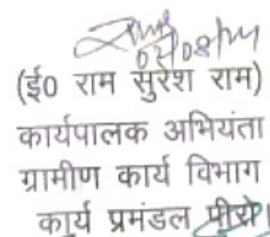 (ई0 राम सुरेश राम)
कार्यपालक अभियंता
ग्रामीण कार्य विभाग
कार्य प्रमंडल पीरो।